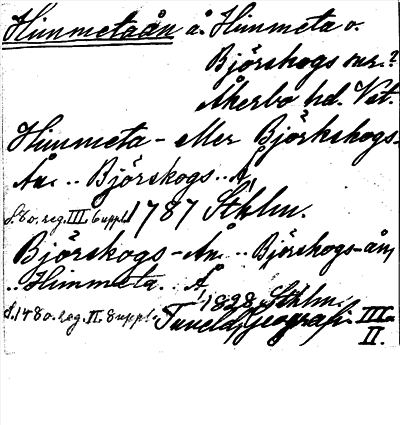 Himmetaån å. Himmeta o.
Björskogs snr.?
Åkerbo hd. Vst.
Himmeta- eller Björkskogs-
Ån .. Björskogs .. Å,
s. 80. reg. III. 6 uppl. 1787 Sthlm.
Björskogs-Ån .. Björskogs-ån,
.. Himmeta .. Å,
1828 Sthlm.
s. 148 o. reg. II. 8 uppl. Tuneld, Geografi III.
II.